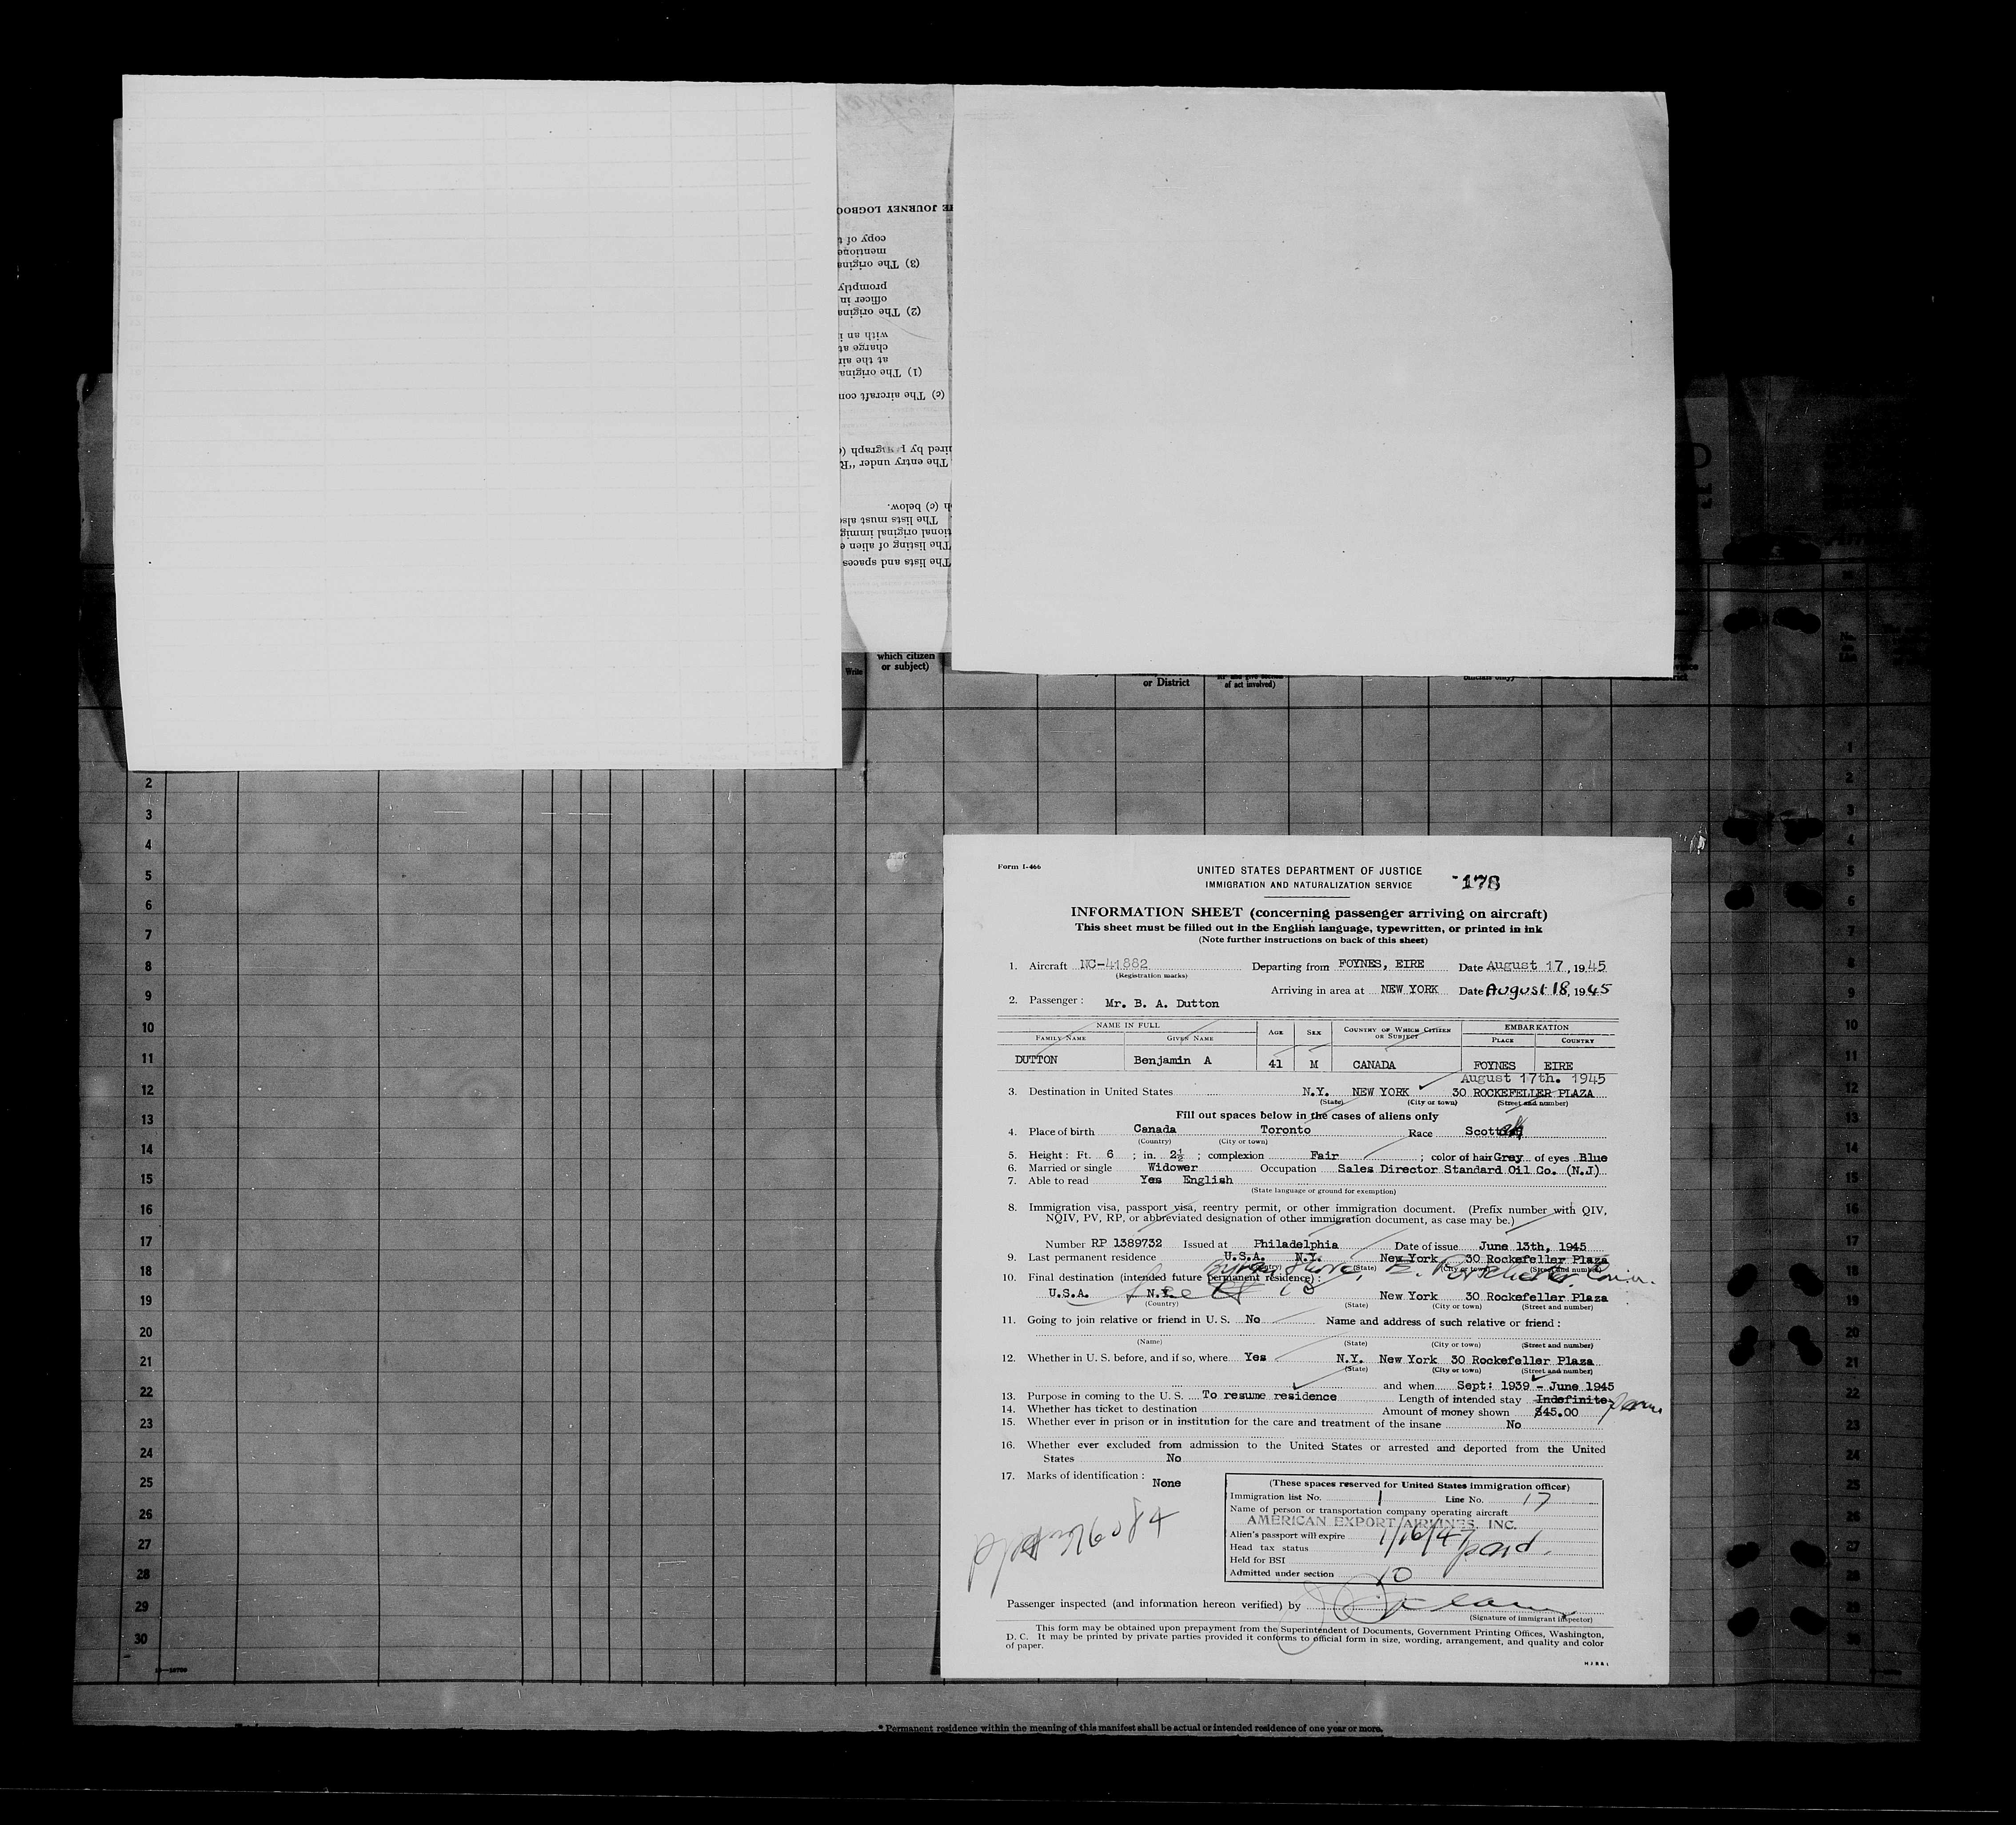 HE JOURNEY LOGBOO
copy of t
mentione
(3) The origina
promptly
officer in
(2) The origina
with an i
charge at
at the air
(1) The origina
(c) The aircraft con
The entry under "R
h (c) below.
The lists must als
tional original immig
The listing of alien e
The lists and spaces
which citizen
or subject)
Write
or District
of act involved)
2
3
4
5
6
7
8
9
10
11
12
13
14
15
16
17
18
19
20
21
22
23
24
25
26
27
28
29
30
Form I-466
UNITED STATES DEPARTMENT OF JUSTICE
IMMIGRATION AND NATURALIZATION SERVICE
178
INFORMATION SHEET (concerning passenger arriving on aircraft)
This sheet must be filled out in the English language, typewritten, or printed in ink
(Note further instructions on back of this sheet)
1. Aircraft NC-41882 Departing from FOYNES, EIRE Date August 17, 1945
(Registration marks)
Arriving in area at NEW YORK Date August 18, 1945
2. Passenger: Mr. B. A. Dutton
NAME IN FULL AGE SEX COUNTRY OF WHICH CITIZEN OR SUBJECT EMBARKATION
FAMILY NAME GIVEN NAME PLACE COUNTRY
DUTTON Benjamin A 41 M CANADA FOYNES EIRE
August 17th. 1945
3. Destination in United States N.Y. NEW YORK 30 ROCKEFELLER PLAZA
(State) (City or town) (Street and number)
Fill out spaces below in the cases of aliens only
4. Place of birth Canada Toronto Race
(Country) (City or town)
5. Height: Ft. 6 ; in. 2½ ; complexion Fair ; color of hair Grey of eyes Blue
6. Married or single Widower Occupation Sales Director Standard Oil Co. (N.J)
7. Able to read Yes English
(State language or ground for exemption)
8. Immigration visa, passport visa, reentry permit, or other immigration document. (Prefix number with QIV,
NQIV, PV, RP, or abbreviated designation of other immigration document, as case may be.)
Number RP 1389732 Issued at Philadelphia Date of issue June 13th, 1945
9. Last permanent residence U.S.A. N.Y. New York 30 Rockefeller Plaza
(Country) (State) (City or town) (Street and number)
10. Final destination (intended future permanent residence):
U.S.A. N.Y. New York 30 Rockefeller Plaza
(Country) (State) (City or town) (Street and number)
11. Going to join relative or friend in U. S. No Name and address of such relative or friend:
(Name) (State) (City or town) (Street and number)
12. Whether in U. S. before, and if so, where Yes N.Y. New York 30 Rockefeller Plaza
(State) (City or town) (Street and number)
and when Sept: 1939 - June 1945
13. Purpose in coming to the U. S. To resume residence Length of intended stay Indefinite Perm
14. Whether has ticket to destination Amount of money shown $45.00
15. Whether ever in prison or in institution for the care and treatment of the insane No
16. Whether ever excluded from admission to the United States or arrested and deported from the United
States No
17. Marks of identification: None
(These spaces reserved for United States immigration officer)
Immigration list No. 1 Line No. 17
Name of person or transportation company operating aircraft
AMERICAN EXPORT AIRLINES, INC.
Alien's passport will expire 1/16/47
Head tax status paid.
Held for BSI
Admitted under section 10
Passenger inspected (and information hereon verified) by
(Signature of immigrant inspector)
This form may be obtained upon prepayment from the Superintendent of Documents, Government Printing Offices, Washington,
D. C. It may be printed by private parties provided it conforms to official form in size, wording, arrangement, and quality and color
of paper.
* Permanent residence within the meaning of this manifest shall be actual or intended residence of one year or more.